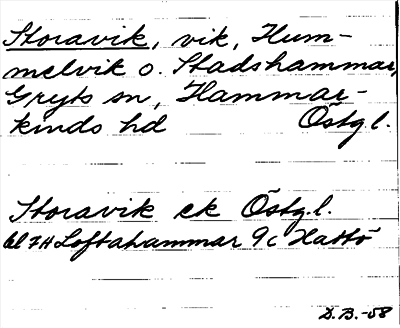 Storavik, vik, Hum-
melvik o. Stadshammar,
Gryts sn, Hammar-
kinds hd Östg.l.
Storavik ek Östg.l.
bl 7H Loftahammar 9c Hattö
D.B.-58